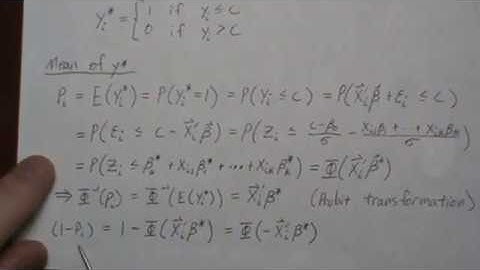 yᵢ* = { 1 if yᵢ ≤ c
0 if yᵢ > c
Mean of y*
Pᵢ = E(yᵢ*) = P(yᵢ* = 1) = P(yᵢ ≤ c) = P(X⃗ᵢ'β⃗ + εᵢ ≤ c)
= P(εᵢ ≤ c - X⃗ᵢ'β⃗) = P(Zᵢ ≤ (c-β₀)/σ - (Xᵢ₁β₁ + ... + Xᵢₖβₖ)/σ)
= P(Zᵢ ≤ β₀* + Xᵢ₁β₁* + ... + Xᵢₖβₖ*) = Φ(X⃗ᵢ'β⃗*)
⇒ Φ⁻¹(Pᵢ) = Φ⁻¹(E(yᵢ*)) = X⃗ᵢ'β* (Probit transformation)
(1-Pᵢ) = 1 - Φ(X⃗ᵢ'β*) = Φ(-X⃗ᵢ'β*)